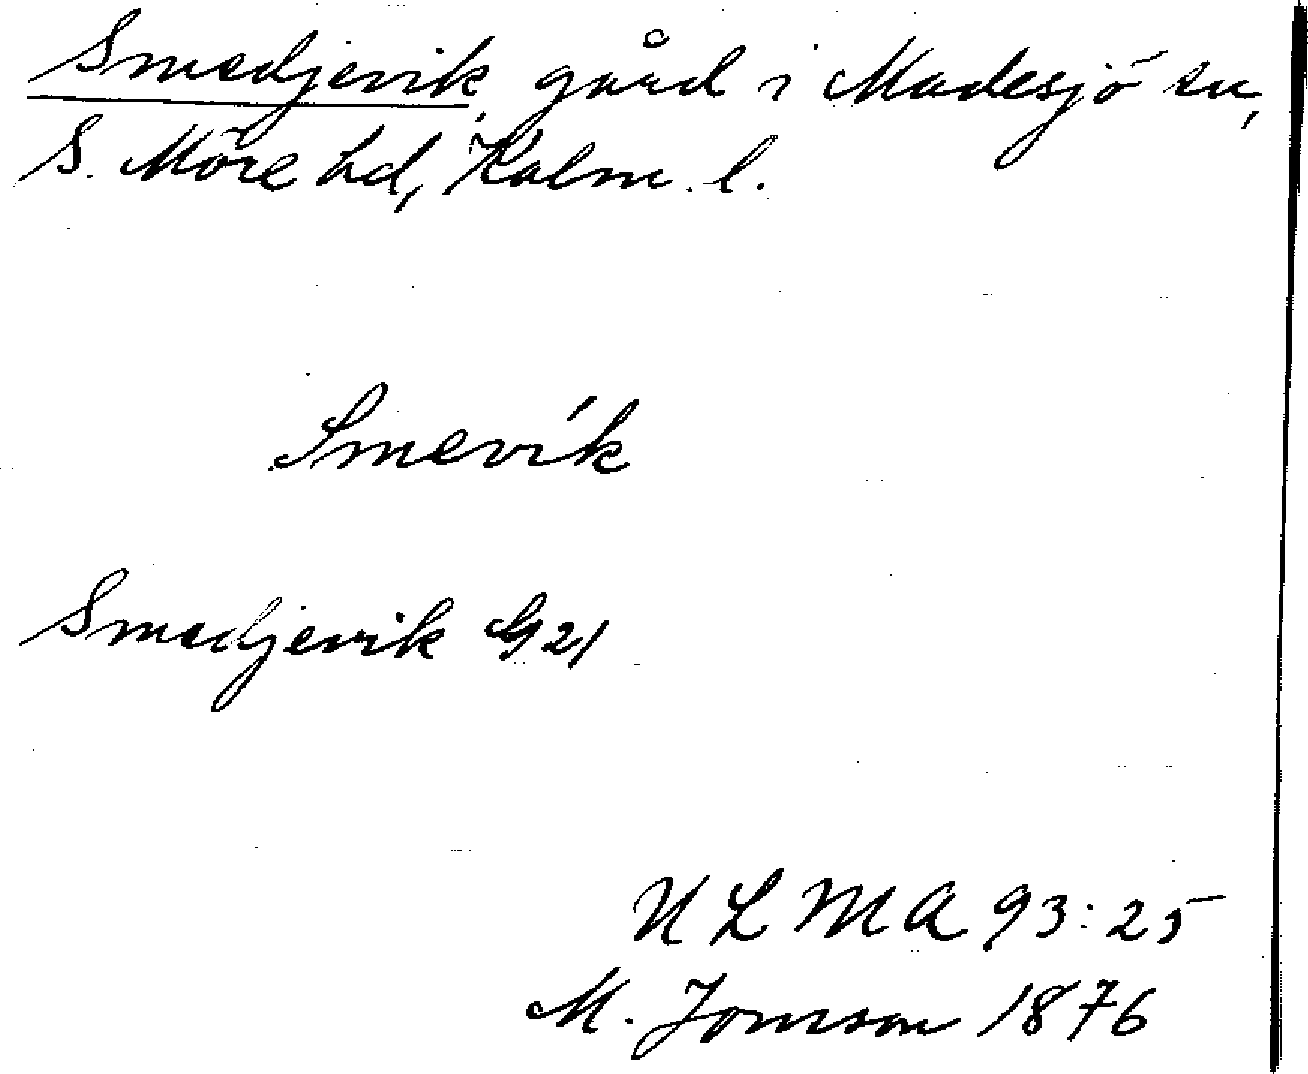 Smedjevik, gård i Madesjö sn,
S. Möre hd, Kalm. l.
Smevik
Smedjevik G 21
ULMA 93:25
M. Jonsson 1876